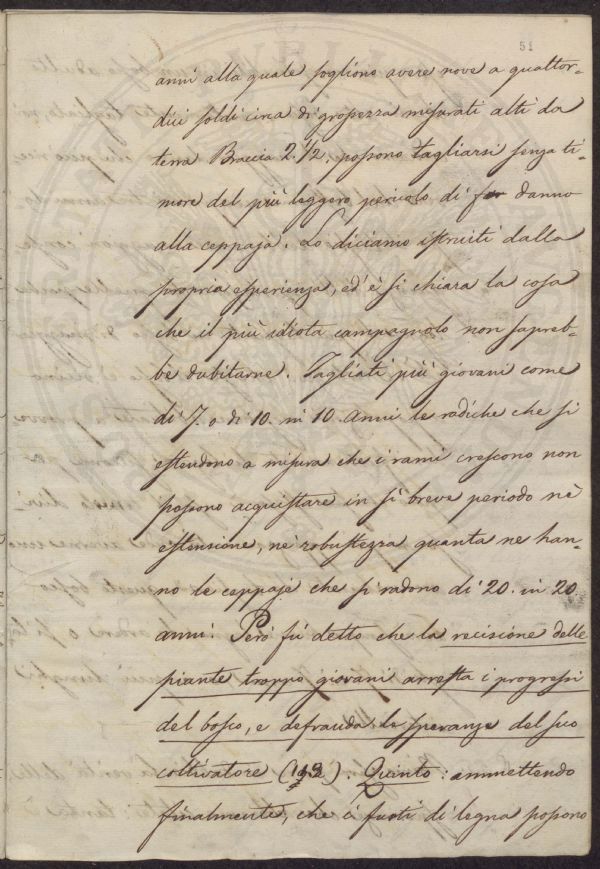 51
anni alla quale sogliono avere nove a quattor-
dici soldi circa di grossezza misurati alti da
terra Braccia 2.½, possono tagliarsi senza ti-
more del più leggero pericolo di far danno
alla ceppaja. Lo diciamo istruiti dalla
propria esperienza, ed è sì chiara la cosa
che il più idiota campagnolo non sapreb-
be dubitarne. Tagliati più giovani come
di 7. o di 10. in 10. anni le radiche che si
estendono a misura che i rami crescono non
possono acquistare in sì breve periodo nè
estensione, nè robustezza quanta ne han-
no le ceppaje che si radono di 20. in 20
anni. Però fù detto che la recisione delle
piante troppo giovani arresta i progressi
del bosco, e defrauda le speranze del suo
coltivatore (). Quinto: ammettendo
finalmente, che i fusti di legna possono